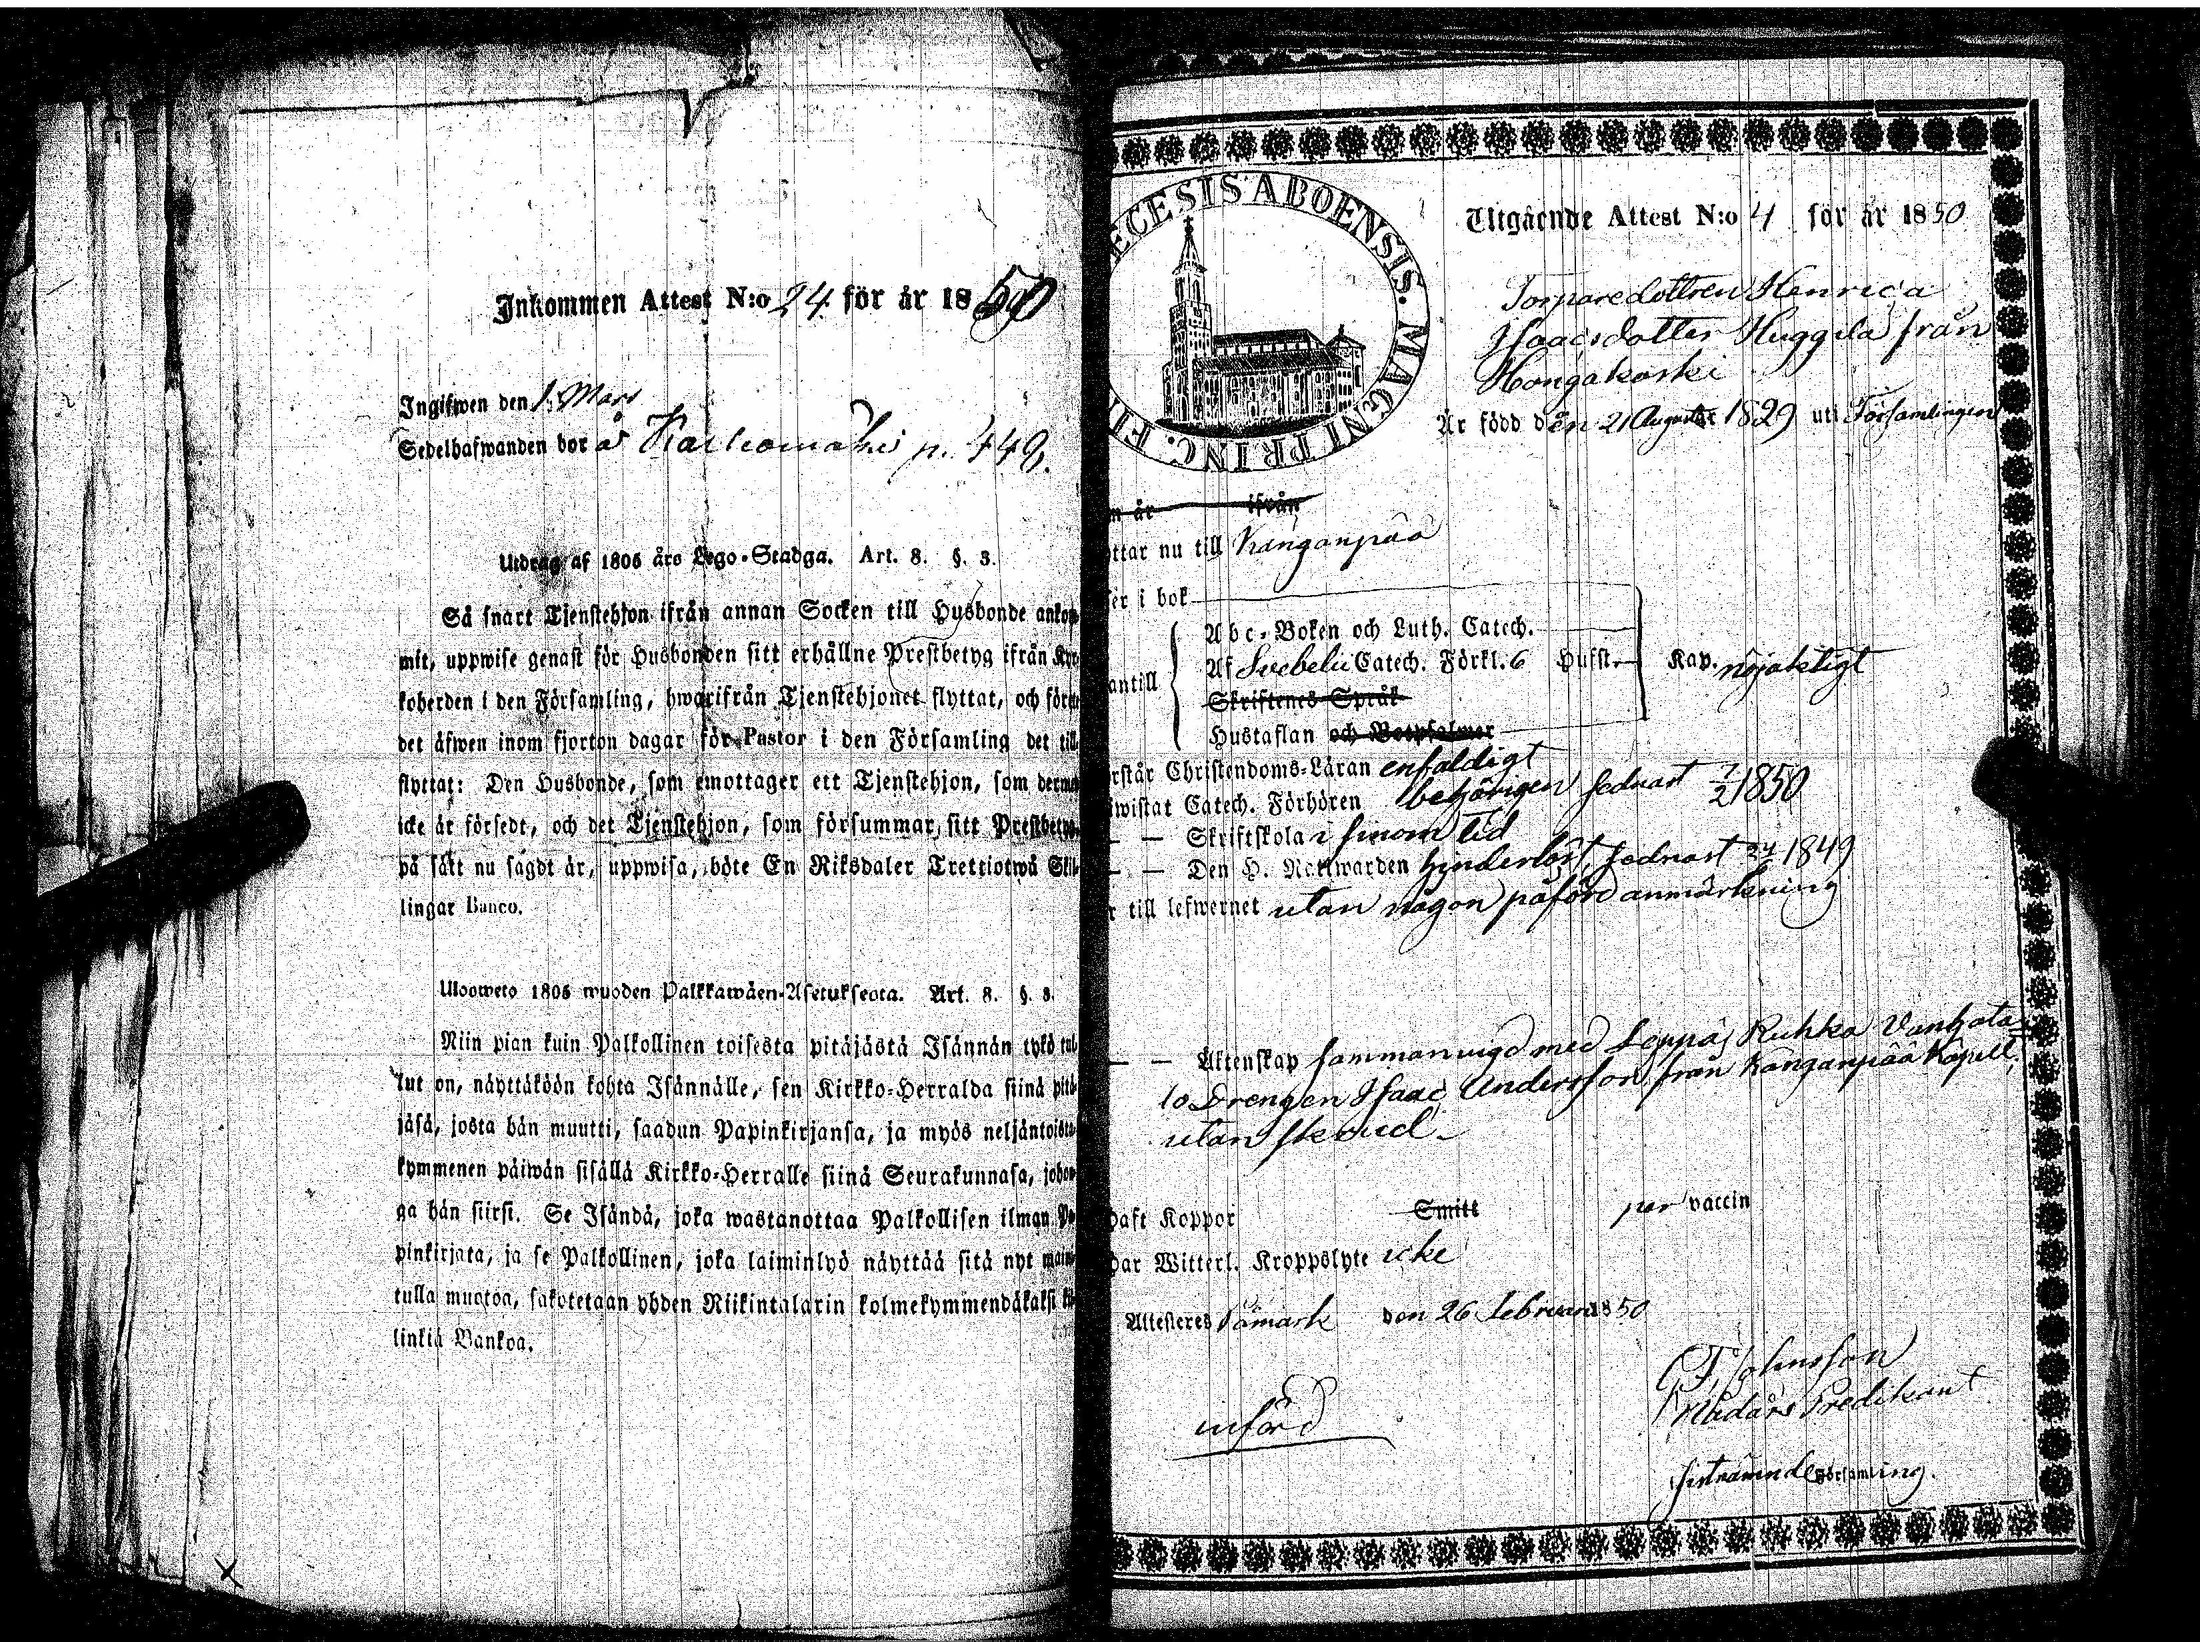 Inkommen Attest N:o 24 för år 1850
Ingifwen den 1 Mars
Sedelhafwanden bor å p. 449.
Utdrag af 1805 års Lego-Stadga. Art. 8. §. 3.
Så snart Tjenstehjon ifrån annan Socken till Husbonde ankom-
mit, uppwise genast för Husbonden sitt erhållne Prestbetyg ifrån Kyr-
koherden i den Församling, hwarifrån Tjenstehjonet flyttat, och för
det äfwen inom fjorton dagar för Pastor i den Församling det till
flyttat: Den Husbonde, som emottager ett Tjenstehjon, som dermed
icke är försedt, och det Tjenstehjon, som försummar sitt Prestbetyg,
på sätt nu sagdt är, uppwisa, böte En Riksdaler Trettiotwå Skil-
lingar Banco.
Ulosweto 1805 wuoden Palkkawäen-Asetuksesta. Art. 8. §. 3.
Niin pian kuin Palkollinen toisesta pitäjästä Isännän tykö tul-
lut on, näyttäköön kohta Isännälle, sen Kirkko-Herralda siinä pitä-
jäsä, josta hän muutti, saadun Papinkirjansa, ja myös neljäntoista-
kymmenen päiwän sisällä Kirkko-Herralle siinä Seurakunnasa, johon-
ga hän siirsi. Se Isändä, joka wastanottaa Palkollisen ilman Pa-
pinkirjata, ja se Palkollinen, joka laiminlyö näyttää sitä nyt main-
tulla muotoa, sakotetaan yhden Riikintalarin kolmekymmendäkaksi ki-
linkiä Bankoa.
ECESIS ABOENSIS. MAGNI PRINC. FI
Utgående Attest N:o 4 för år 1850
Torparedottren Henrica
Isaacsdotter Huggila från
Hongakoski
Är född den 21 Augusti 1829 uti Församlingen
m är ifrån
ttar nu till Kanganpää
ser i bok
Abc-Boken och Luth. Catech.
antill Af Svebelii Catech. Förkl. 6 Husst. Kap. nöjaktigt
Skriftenes Språk
Hustaflan och Botpsalmer
rstår Christendoms-Läran enfaldigt
wistat Catech. Förhören behörigen sednast 7/2 1850
— Skriftskola i sinom tid
— — Den H. Nattwarden hinderlöst, sednast 24 1849
r till lefwernet utan någon påförd anmärkning
— — Äktenskap sammanvigd med Leppäs Ruhka Vanhata
lo Drengen Isaac Andersson från Kanganpää Kapell,
utan skrud.
haft Koppor Smitt per vaccin
har Witterl. Kroppslyte icke
Attesteres Påmark den 26 Februari 1850
Johnsson
Nådårs Predikant
införd
sistnämnde Församling.